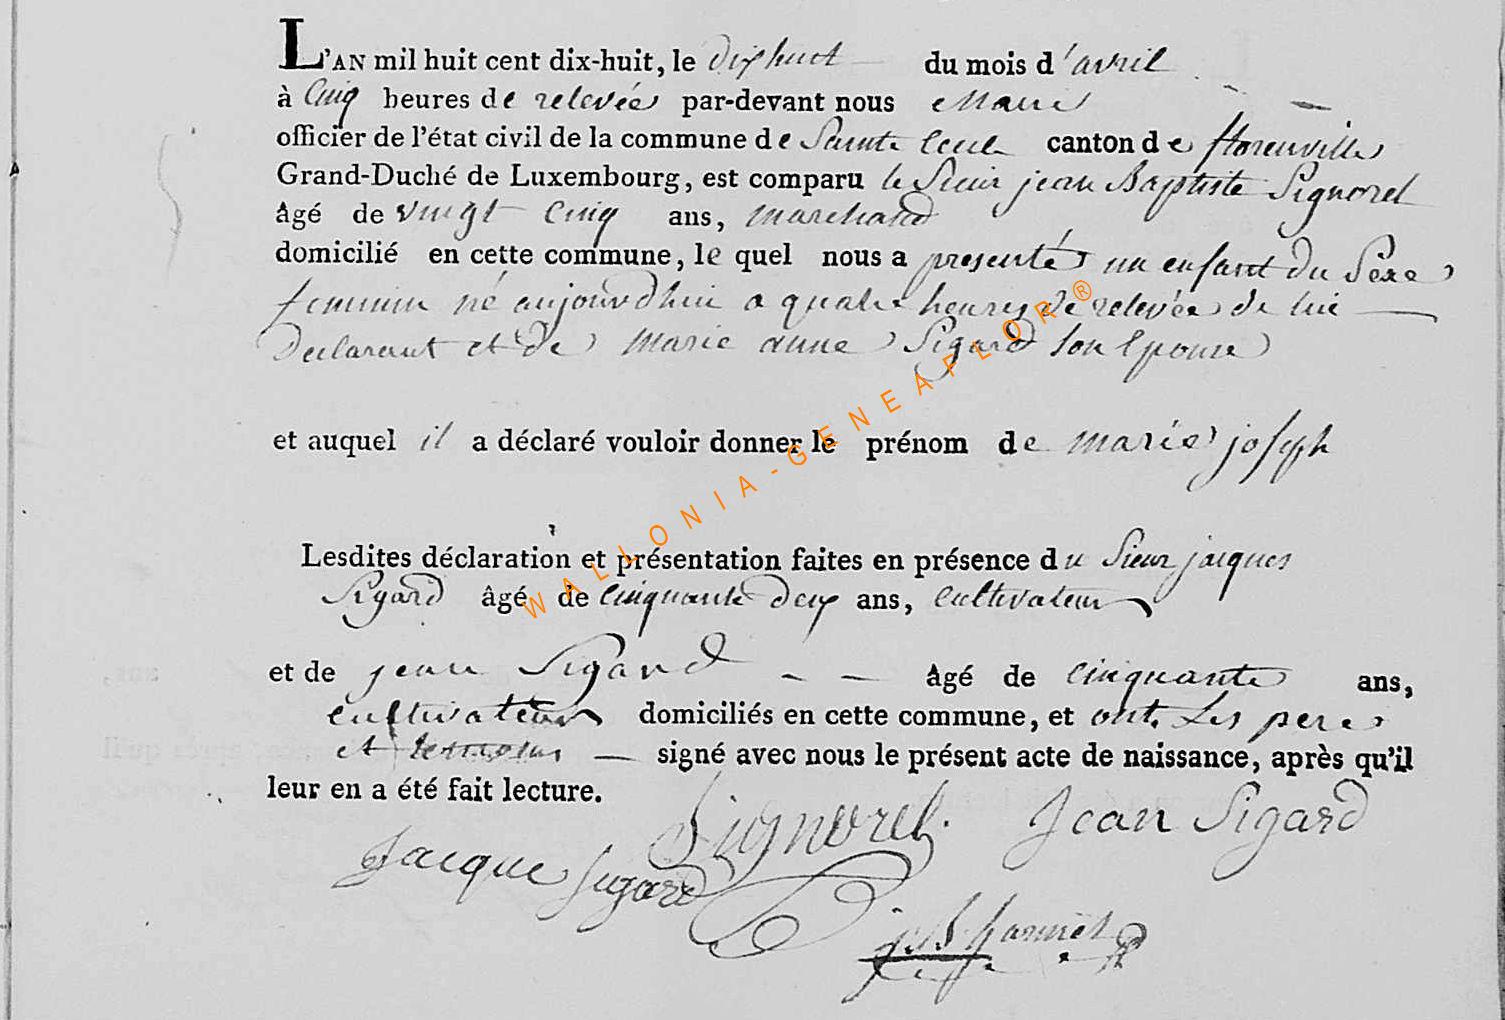 L'AN mil huit cent dix-huit, le dix huit du mois d'avril
à cinq heures de relevée par-devant nous Maire
officier de l'état civil de la commune de Sainte Cecile canton de florenville
Grand-Duché de Luxembourg, est comparu le Sieur jean Baptiste Signorel
âgé de vingt cinq ans, marchand
domicilié en cette commune, le quel nous a presenté un enfant du Sexe
feminin né aujourd'hui a quatre heures de relevée de lui
declarant et de Marie anne Sigard son Epouse
et auquel il a déclaré vouloir donner le prénom de marie joseph
Lesdites déclaration et présentation faites en présence du Sieur jacques
Sigard âgé de cinquante deux ans, cultivateur
et de jean Sigard âgé de cinquante ans,
cultivateur domiciliés en cette commune, et ont les peres
et temoins signé avec nous le présent acte de naissance, après qu'il
leur en a été fait lecture.
Signorel. Jean Sigard
Jacque Sigard
WALLONIA-GENEAFLOR®